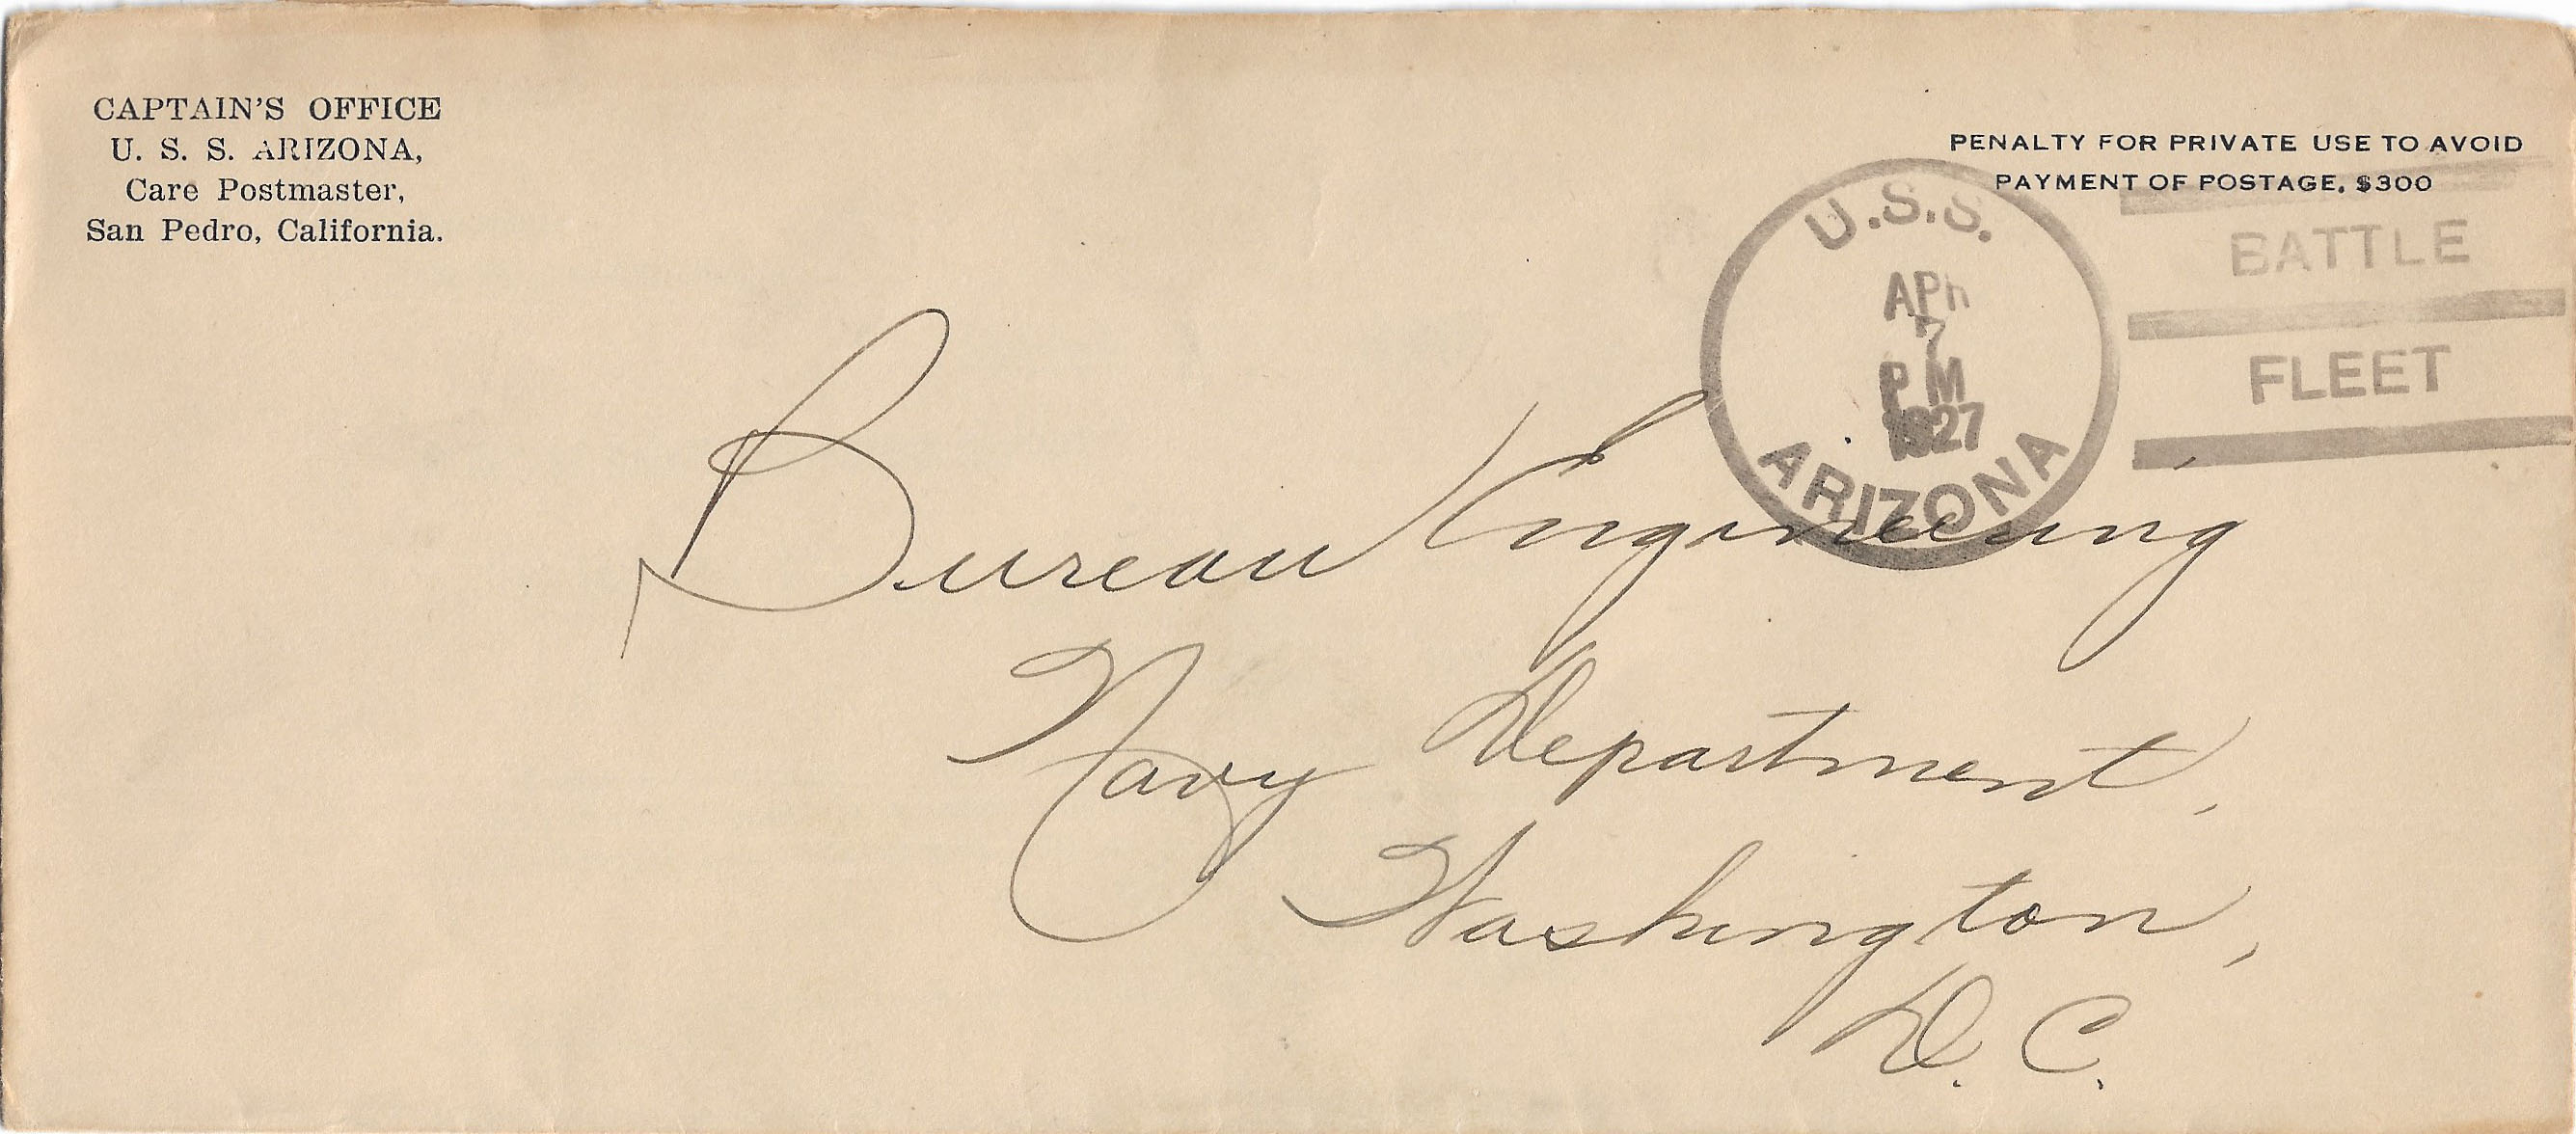 CAPTAIN'S OFFICE
U. S. S. ARIZONA,
Care Postmaster,
San Pedro, California.
PENALTY FOR PRIVATE USE TO AVOID
PAYMENT OF POSTAGE, $300
U.S.S.
APR
7
PM
1927
ARIZONA
BATTLE
FLEET
Bureau Engineering
Navy Department,
Washington,
D. C.